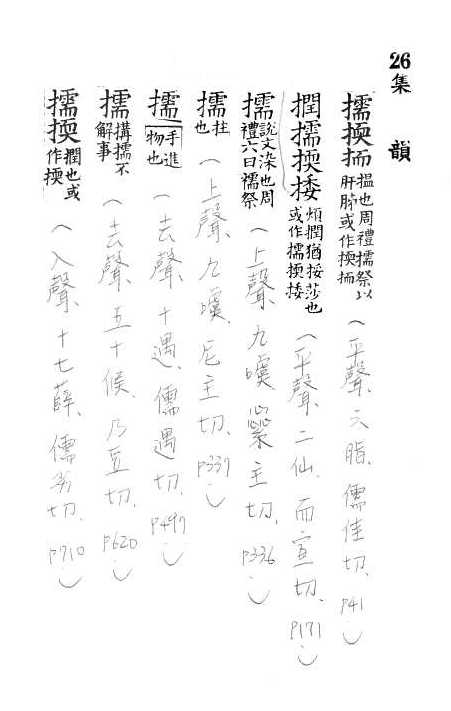 26集 韻
擩㨎抐 搵也周禮擩祭以肝肺或作㨎抐 (平聲、六脂、儒佳切、P41)
撋擩㨎捼 煩撋猶挼莎也或作擩㨎捼 (平聲、二仙、而宣切、P171)
擩 說文染也周禮六曰擩祭 (上聲、九噳、繠主切、P336)
擩 拄也 (上聲、九噳、尼主切、P337)
擩 手進物也 (去聲、十遇、儒遇切、P497)
擩 搆擩不解事 (去聲、五十候、乃豆切、P620)
擩㨎 撋也或作㨎 (入聲、十七薛、儒劣切、P710)